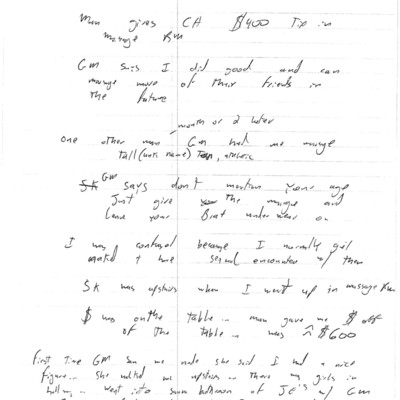 Man gives CA $400 Tip in
massage Rm
GM says I did good and can
massage more of their friends in
the future
month or 2 later
one other man GM had me massge
tall (unk name) , 
SK GM says don't mention your age
Just give the massge and
leave your Bra + under wear on
I was confused because I normally get
naked + have sexual encounter w/ them
SK was upstairs when I went up in massage Rm
$ was on the table... man gave me $ off
of the table... was ≈ $600
first Time GM saw me nude she said I had a nice
figure... she me upstairs... There girls in
hallway... went into bathroom of JE's w/ GM